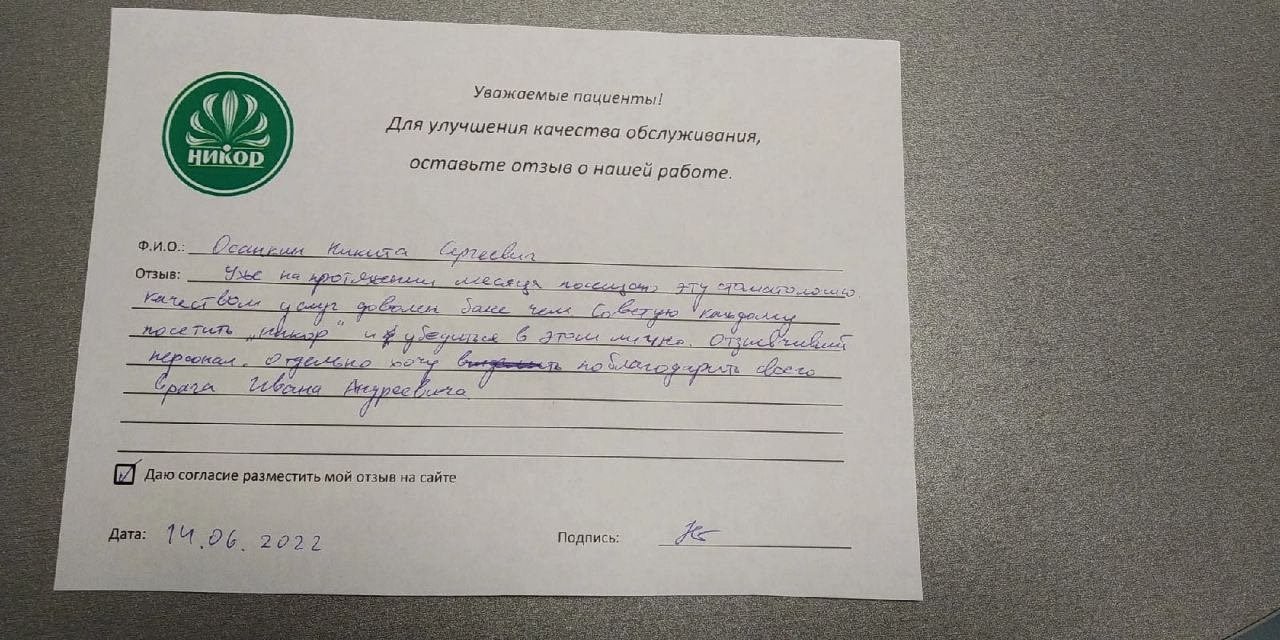 НИКОР
Уважаемые пациенты!
Для улучшения качества обслуживания,
оставьте отзыв о нашей работе.
Ф.И.О.: Осанкин Никита Сергеевич
Отзыв: Уже на протяжении месяца посещаю эту стоматологию.
качеством услуг доволен более чем Советую каждому
посетить „никор" и убедиться в этом лично. Отзывчивый
персонал. Отдельно хочу поблагодарить своего
врача Ивана Андреевича
Даю согласие разместить мой отзыв на сайте
Дата: 14.06.2022
Подпись: